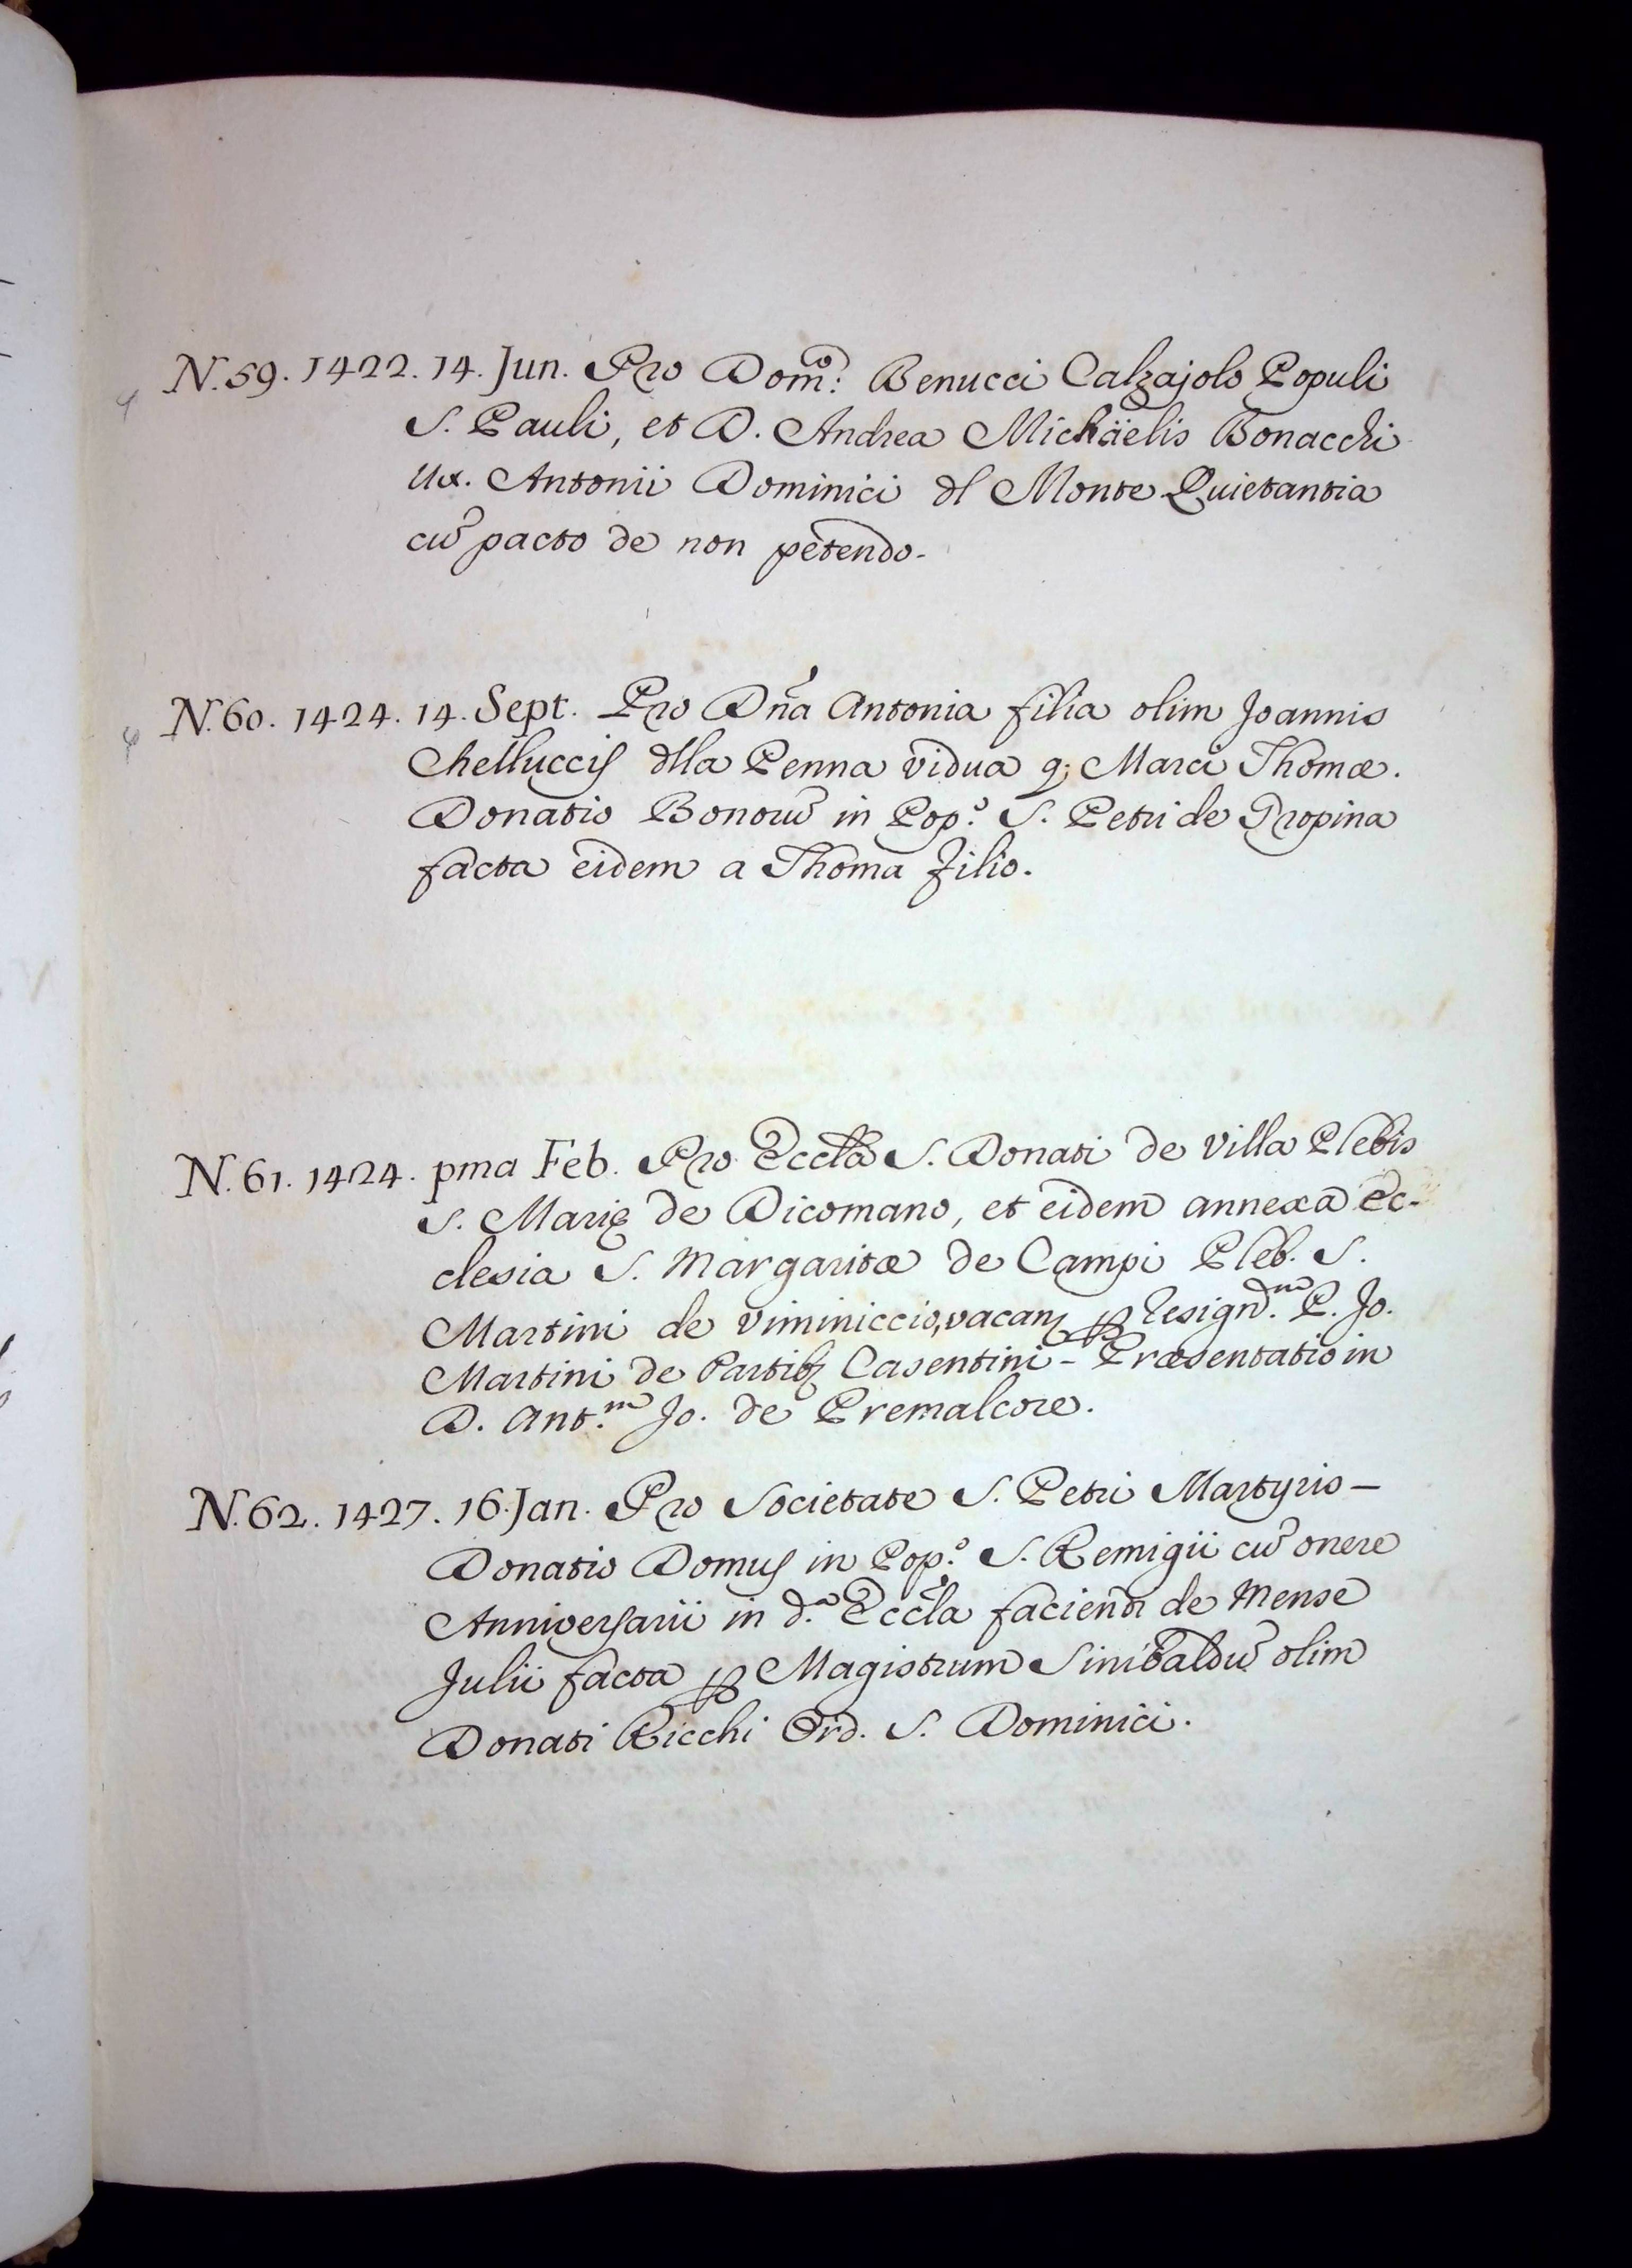 N.59. 1422. 14. Jun. Pro Dom:º Benucci Calzajolo Populi
S. Pauli, et D. Andrea Michäelis Bonacchi
Ux. Antonii Dominici dl Monte Quietantia
cũ pacto de non petendo.
N.60. 1424. 14. Sept. Pro Dña Antonia filia olim Joannis
Chelluccis dlla Penna vidua q; Marci Thomæ.
Donatio Bonorũ in Pop.º S. Petri de Gropina
facta eidem a Thoma filio.
N.61. 1424. pma Feb. Pro Eccla S. Donati de Villa Plebis
S. Marię de Dicomano, et eidem annexa Ec-
clesia S. Margaritæ de Campi Pleb. S.
Martini de Viminiccio, vacanz ꝑ resign.dm P. Jo.
Martini de Partibꝫ Casentini - Præsentatio in
D. Ant.m Jo. de Premalcore.
N.62. 1427. 16. Jan. Pro Societate S. Petri Martyris -
Donatio Domus in Pop.º S. Remigii cũ onere
Anniversarii in d.a Eccla faciendi de Mense
Julii facta ꝑ Magistrum Sinibaldũ olim
Donati Ricchi Ord. S. Dominici.